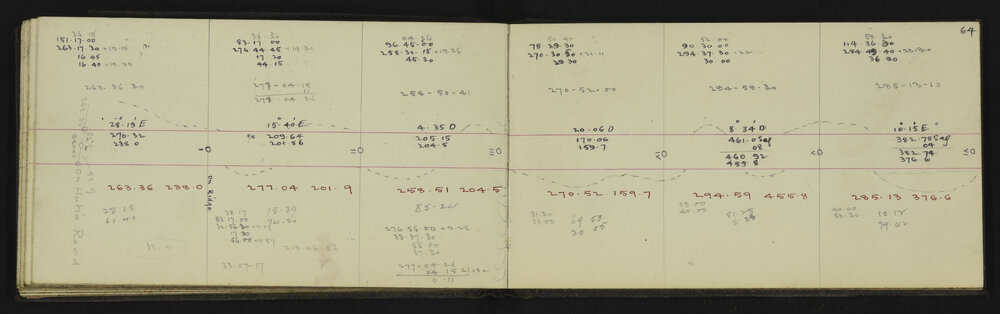 64
36.15
151.17.00
263.17.20 +19.15
16.45
16.40 +19.23
263.36.30
28.19 E
270.32
238.0
263.36 238.0
25.15
On Hutia Road
33.11
36.30
83.17.00
276.44.45 +19.30
17.30
44.15
277.04.15
11
277.04.26
15.40 E
209.64
201.86
On Ridge
277.04 201.9
15.39
74.20
83.17.00
17.30
213.46.56
33.07.07
04.26
96.45.00
258.31.15 +19.26
45.30
258-50-41
4.35 D
205.15
204.5
258.51 204.5
85.22
276.55.00 +9.26
33.37.30
55.00
37.30
277-04-26
04.15 Close
0.11
50.42
78.29.30
270.30.50 +21.11
29.30
270-52-00
20.06 D
170.06
159.7
270.52 159.7
31.20
33.00
69.53
20.05
52.00
90.30.00
294.37.30 -22
30.00
294-59-30
8.34 D
461.0 Sag
08
460.92
455.8
294.59 455.8
38.00
40.00
81.25
8.35
59.30
114.36.30
284.49.40 +23.30
36.30
285-13-10
10.15 E
382.78 Sag
04
382.74
376.6
285.13 376.6
40.00
53.30
10.12
79.42